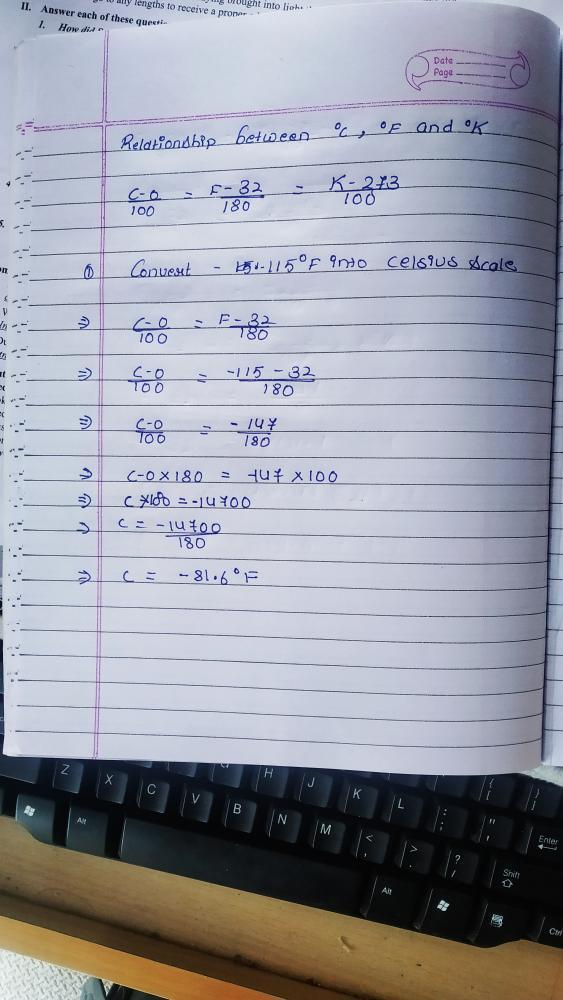 to any lengths to receive a proper
brought into
II. Answer each of these
1. How did
Date
Page
Relationship between °C, °F and °K
C-0/100 = F-32/180 = K-273/100
① Convert - -115°F into celsius scale
⇒ C-0/100 = F-32/180
⇒ C-0/100 = -115-32/180
⇒ C-0/100 = -147/180
⇒ C-0×180 = -147×100
⇒ C×180 = -14700
⇒ C = -14700/180
⇒ C = -81.6°F
Z X C V B N M H J K L
Alt
< ,
> .
? /
: ;
" '
{ [
} ]
Enter
Shift
Alt
Ctrl